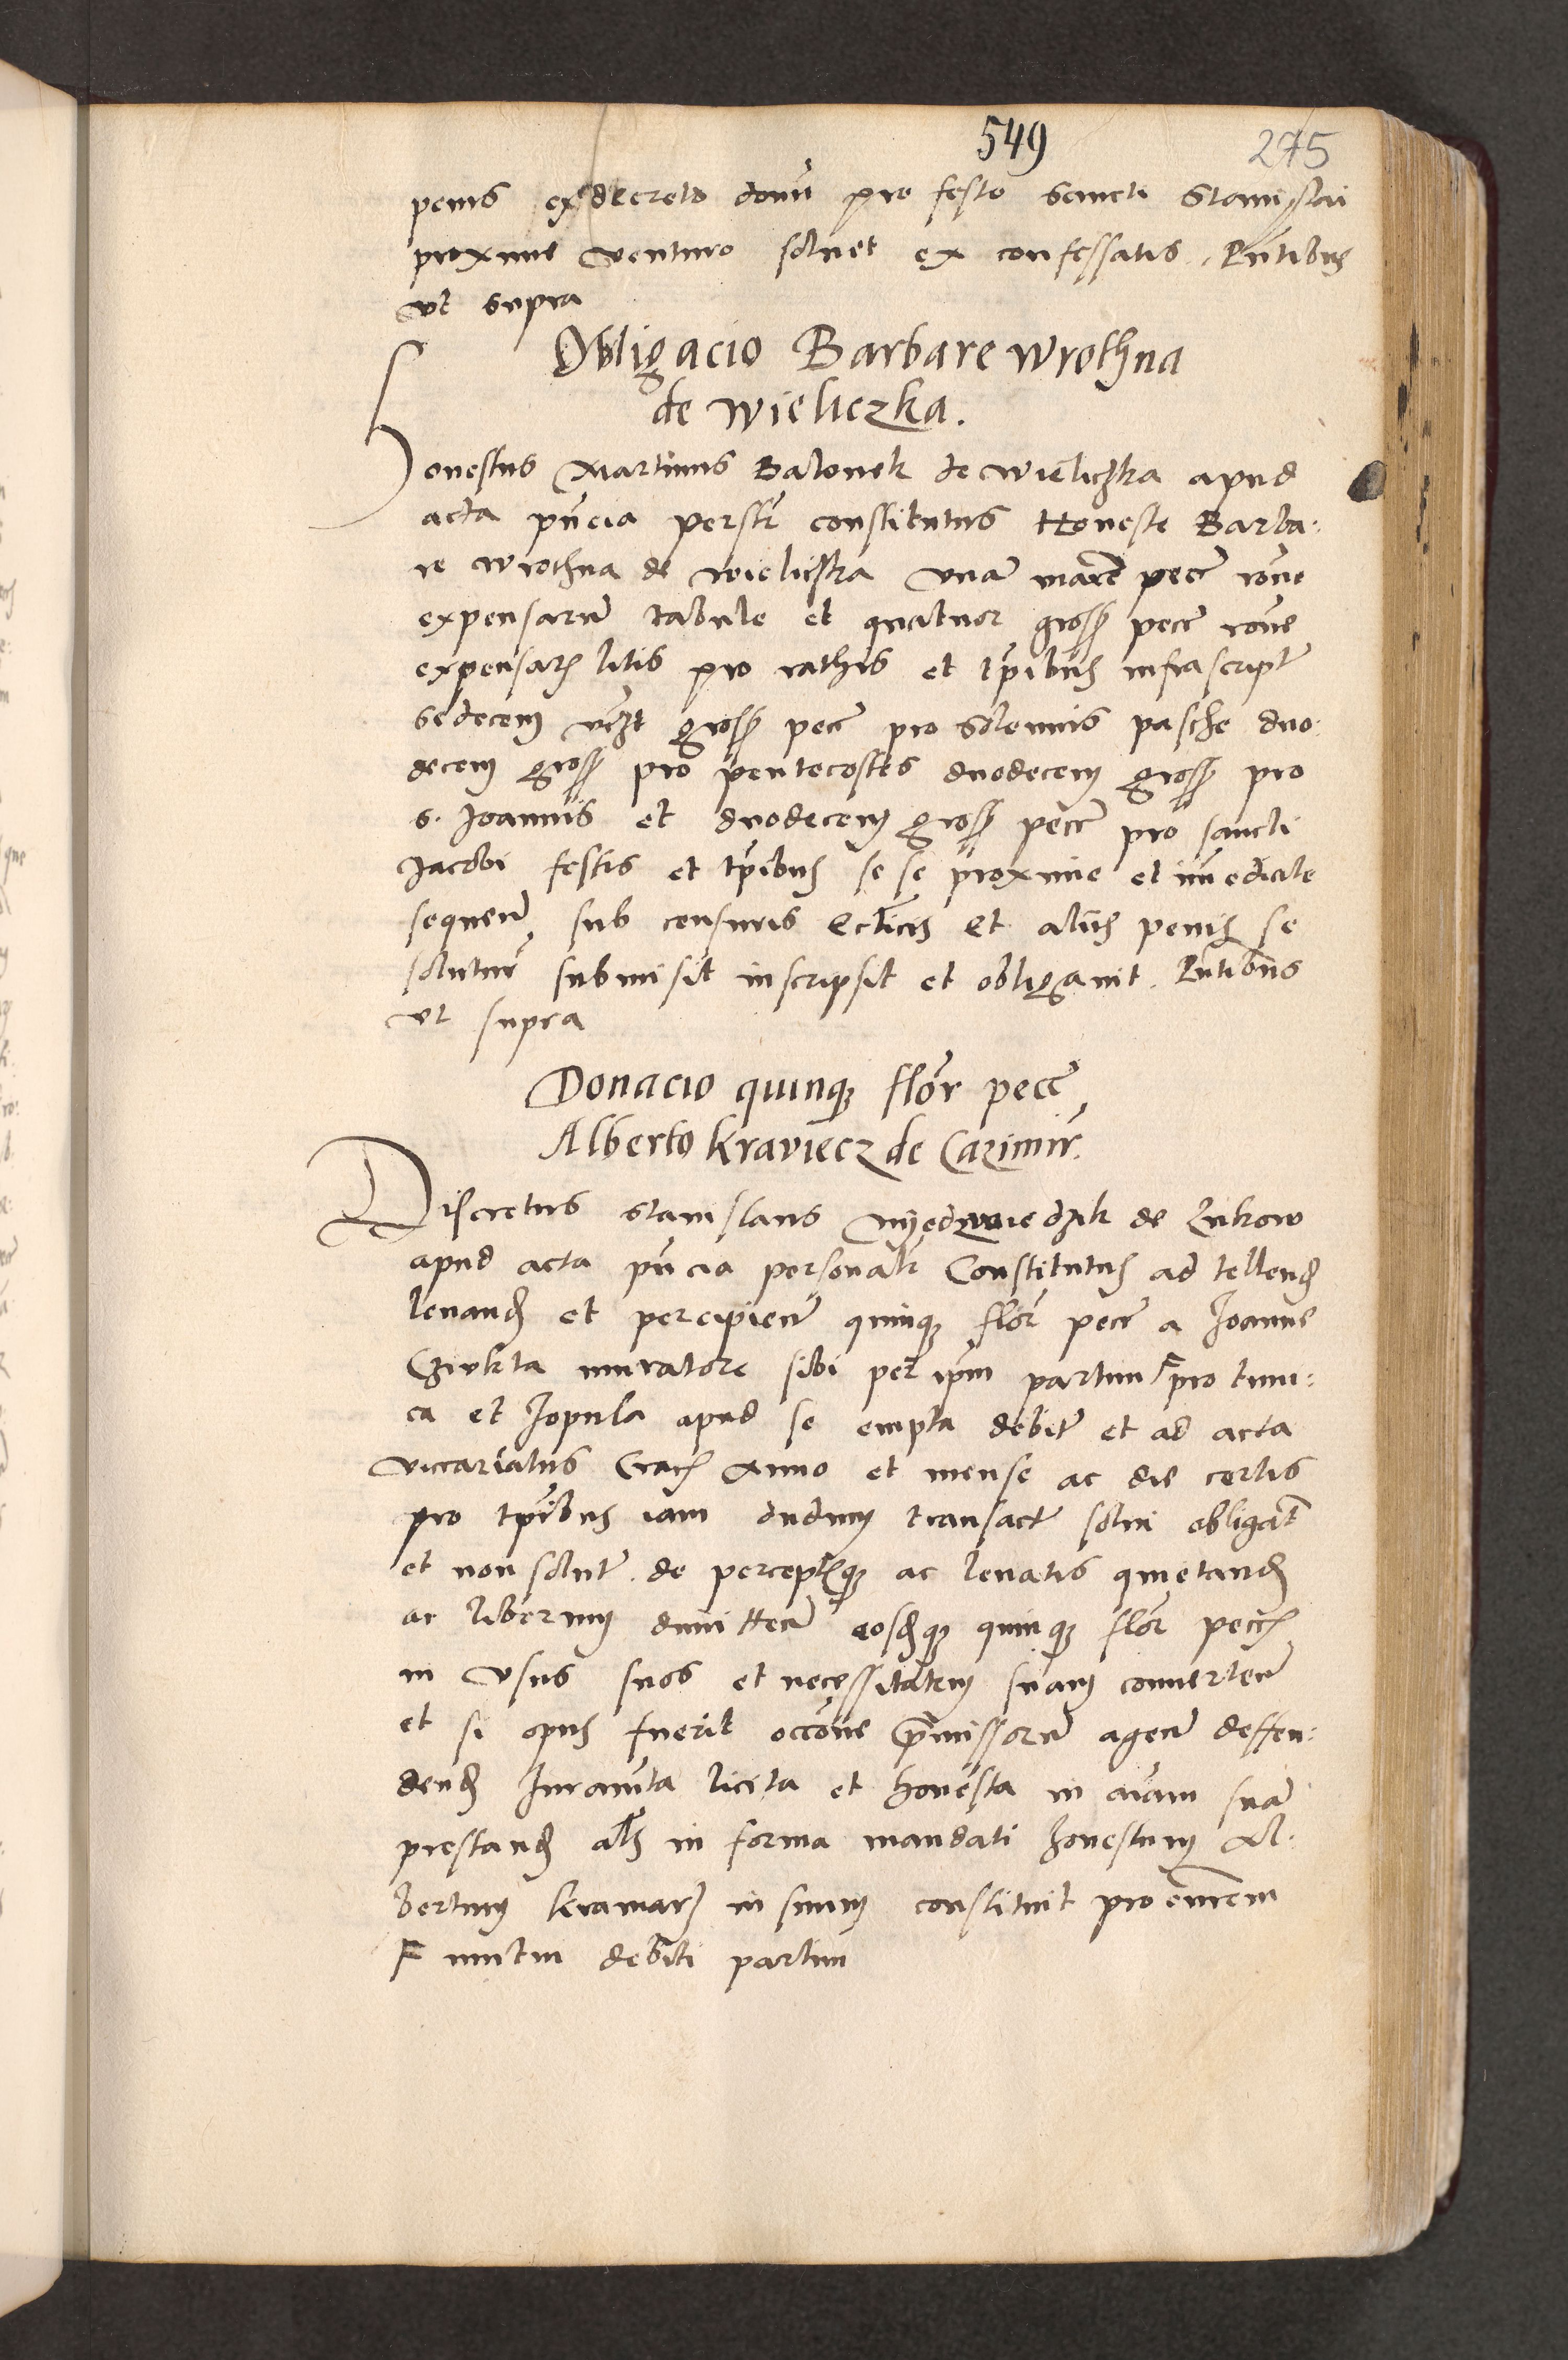 549
275
penis ex decreto domi pro festo sancti Stanislai
proxime venturo solvet ex confessatis. Pntibus
vt supra
Obligacio Barbare Wrothna
de Wieliczka.
Honestus Martinus Balonek de Wieliczka apud
acta pñcia persolr constitutus Honeste Barba:
re Wrothna de Wieliczka vnã marc pecc rõne
expensarũ tabule et quatuor gross pecc rõne
expensar litis pro rathis et tpibus infrascript
sedecem vczt gross pecc pro solennis pasche duo:
decem gross pro pentecostes duodecem gross pro
s. Joannis et duodecem gross pecc pro sancti
Jacobi festis et tpibus se se proxime et imediate
sequen sub censuris Ecclicis et aliis penis se
solutur submisit inscripsit et obligavit. Pntibus
vt supra
Donacio quinq flor pecc
Alberto Kraviecz de Cazimir.
Discretus Stanislaus Nyedzwiedzik de Lukow
apud acta pñcia personalr Constitutus ad tollend
levand et percipien quinq flor pecc a Joanne
muratore sibi per ipm partim ┌ pro tuni:
ca et Jopula apud se empta debit et ad acta
viccariatus Crac Anno et mense ac die certis
pro tpibus iam dudum transact solvi obligat
et non solut. de perceptisq ac levatis quietand
ac liberum dimitten eosdq quinq flor pecc
in vsus suos et necessitatem suam converten
et si opus fuerit occõne pmissorũ agen deffen:
dend Juramta licita et honesta in aiam suã
prestand als in forma mandati honestum Al:
bertum in suum constituit procurem
┌ debiti partim